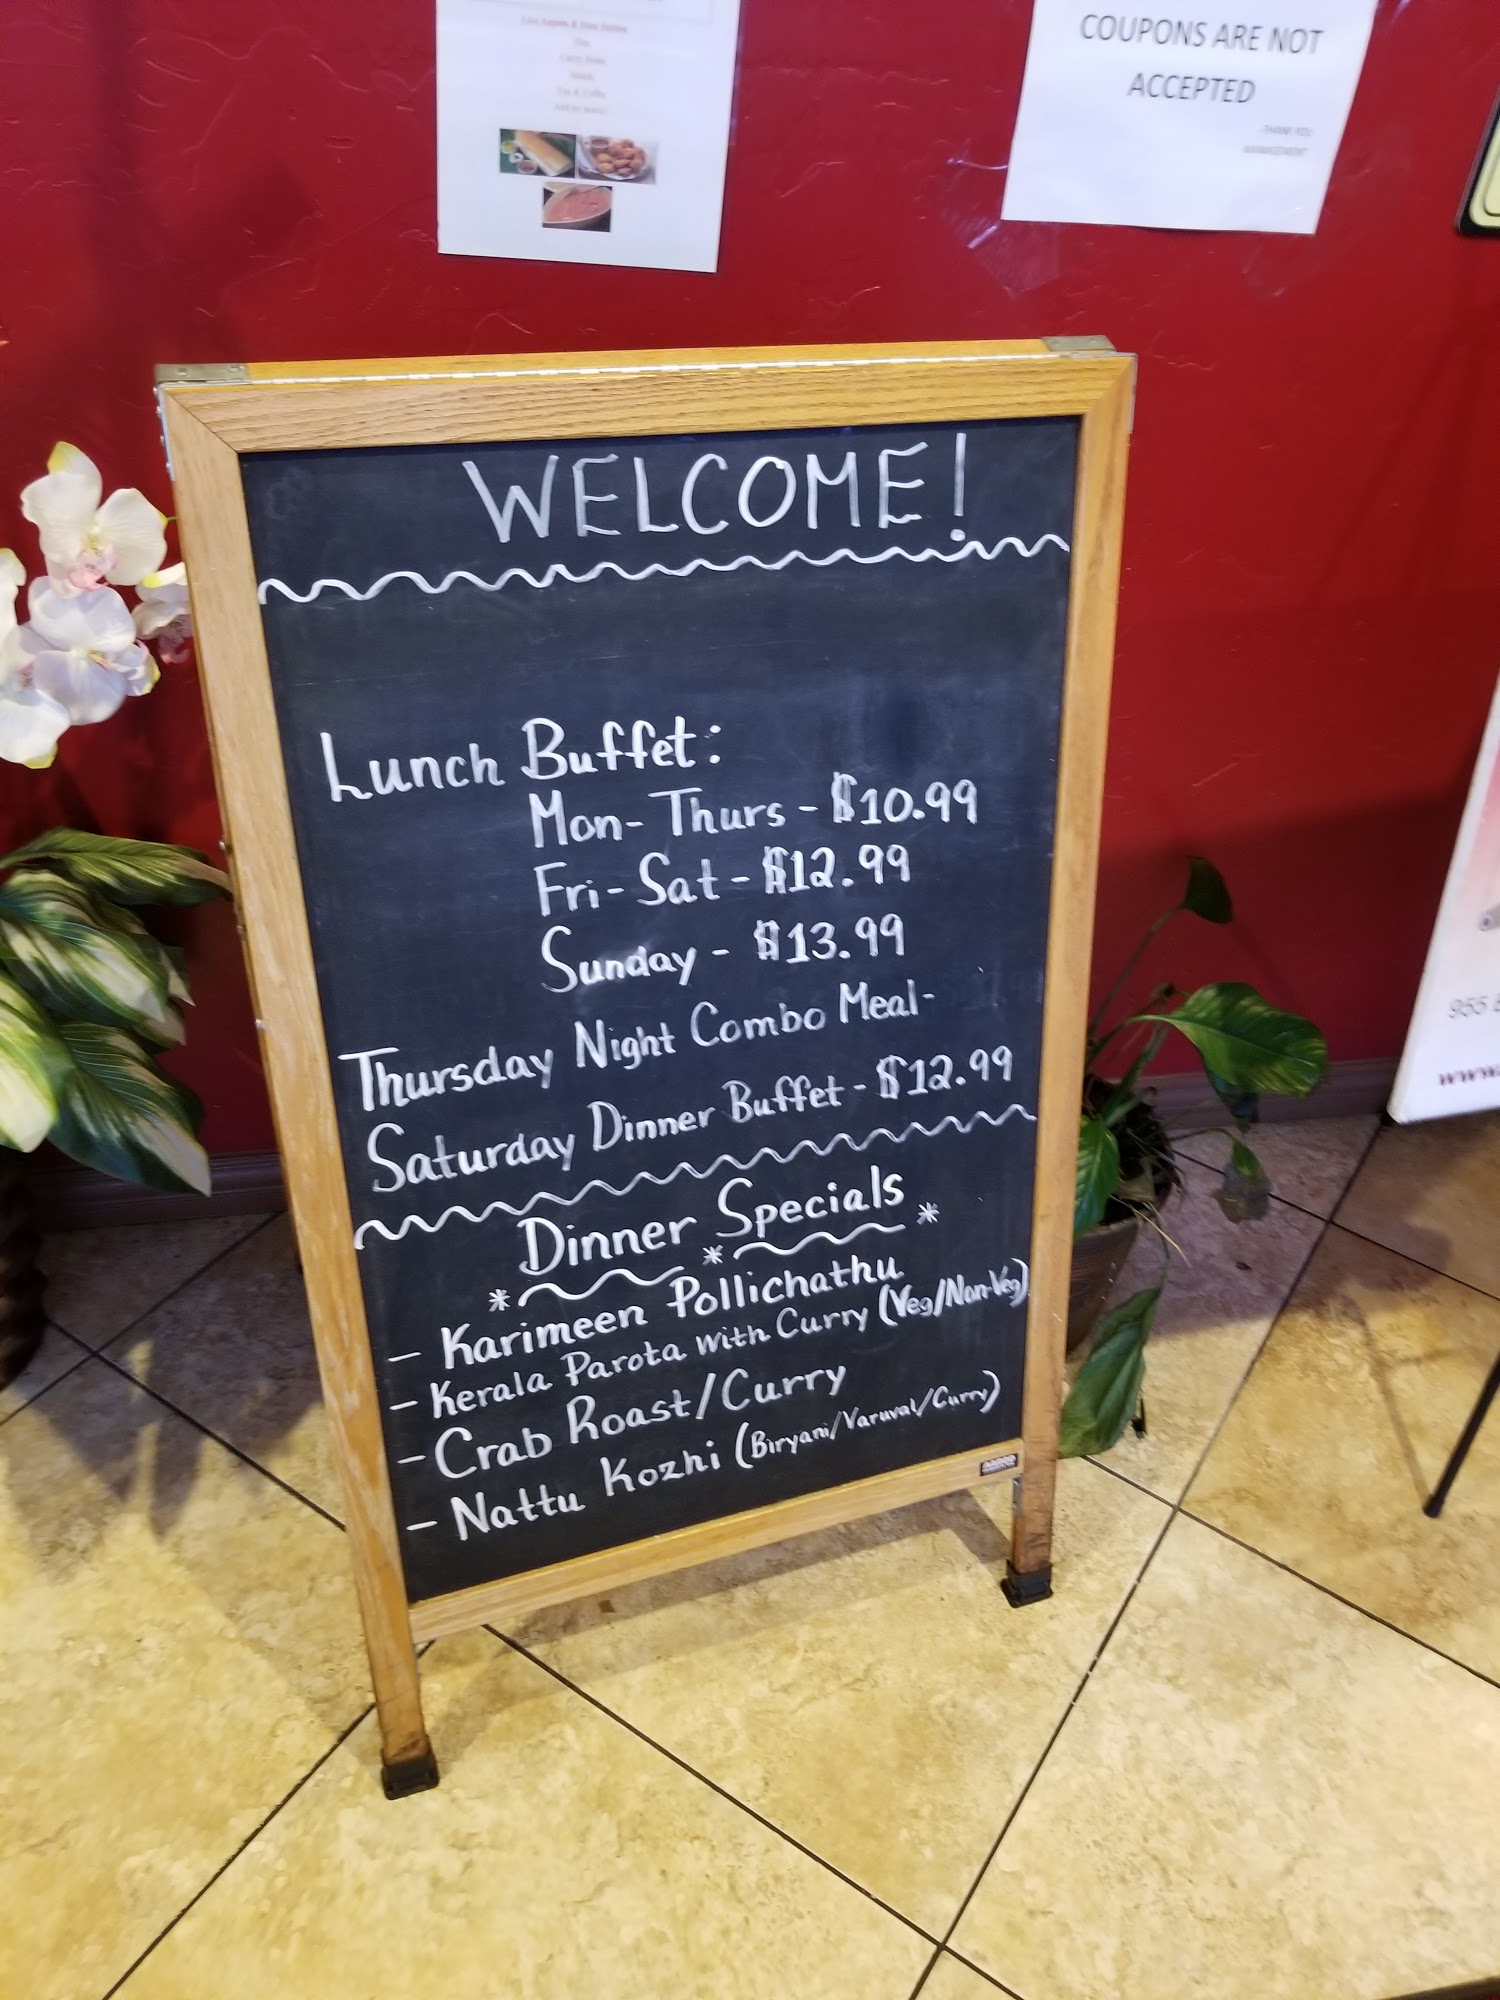 COUPONS ARE NOT
ACCEPTED
THANK YOU
MANAGEMENT
WELCOME!
Lunch Buffet:
Mon- Thurs - $10.99
Fri- Sat - $12.99
Sunday - $13.99
Thursday Night Combo Meal-
Saturday Dinner Buffet - $12.99
Dinner Specials
* * *
- Karimeen Pollichathu
- Kerala Parota with Curry (Veg/Non-Veg)
- Crab Roast/Curry
- Nattu Kozhi (Biryani/Varuval/Curry)
955
www.